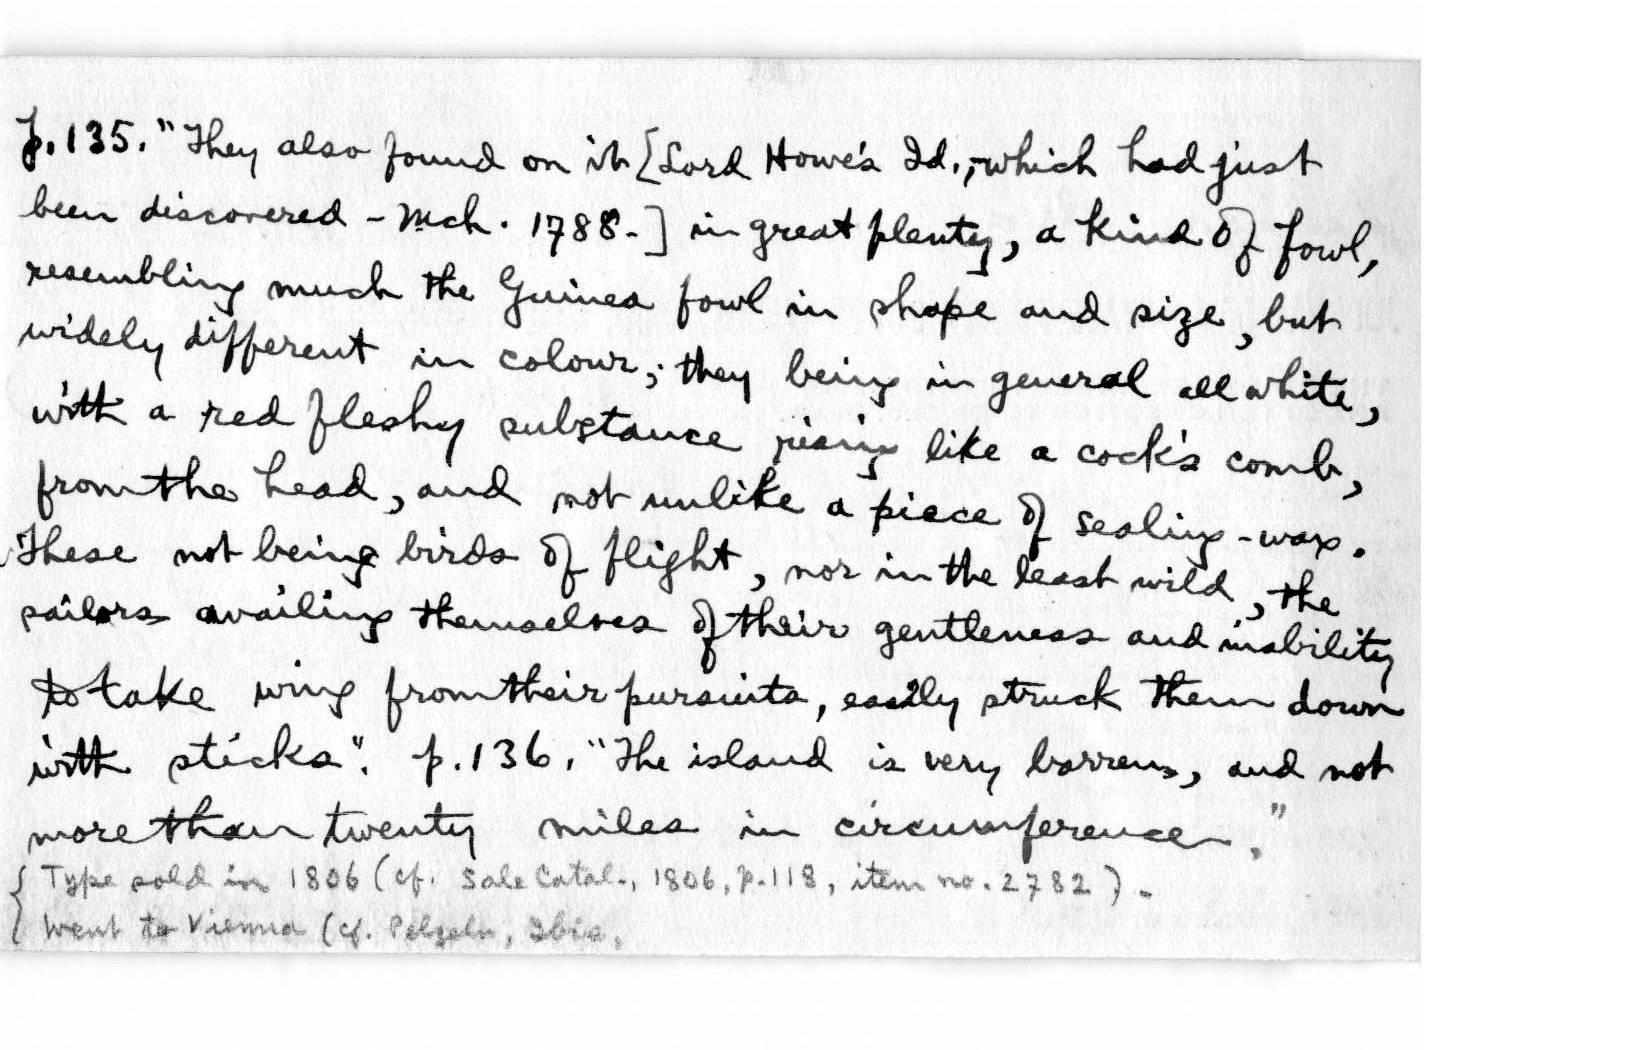 p.135. "They also found on it [Lord Howe's Id., which had just
been discovered - Mch. 1788-] in great plenty, a kind of fowl,
resembling much the Guinea fowl in shape and size, but
widely different in colour; they being in general all white,
with a red fleshy substance rising like a cock's comb,
from the head, and not unlike a piece of sealing-wax.
These not being birds of flight, nor in the least wild, the
sailors availing themselves of their gentleness and inability
to take wing from their pursuits, easily struck them down
with sticks". p.136. "The island is very barren, and not
more than twenty miles in circumference."
{ Type sold in 1806 (cf. Sale Catal., 1806, p.118, item no. 2782). -
{ Went to Vienna (cf. Pelzeln, Ibis,